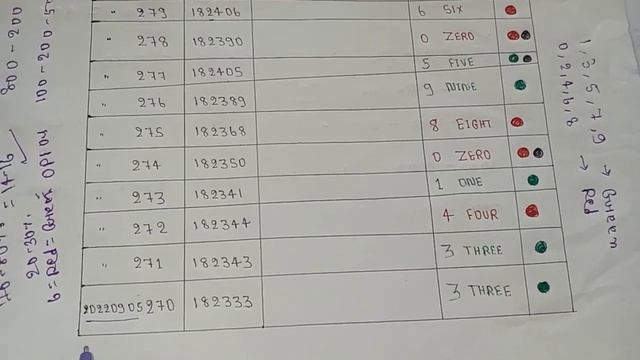 " 279 182406 6 SIX
" 278 182390 0 ZERO
" 277 182405 5 FIVE
" 276 182389 9 NINE
" 275 182368 8 EIGHT
" 274 182350 0 ZERO
" 273 182341 1 ONE
" 272 182344 4 FOUR
" 271 182343 3 THREE
20220905270 182333 3 THREE
1,3,5,7,9 → Green
0,2,4,6,8 → Red
800-200
100-200-5
= 14-16
20-30%
6 = Red = Green